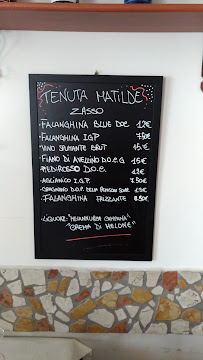 TENUTA MATILDE
ZASSO
- FALANGHINA BLUE DOC 12€
- FALANGHINA IGP 7,50€
- VINO SPUMANTE BRUT 15€
- FIANO DI AVELLINO D.O.C.G. 15€
- PIEDIROSSO D.O.C. 12€
- AGLIANICO I.G.P. 7,50€
- GRAGNANO D.O.P. DELLA PENISOLA SORR. 12€
- FALANGHINA FRIZZANTE 8,50€
- LIQUORI: "MELANNURCA CAMPANA"
"CREMA DI MELONE"